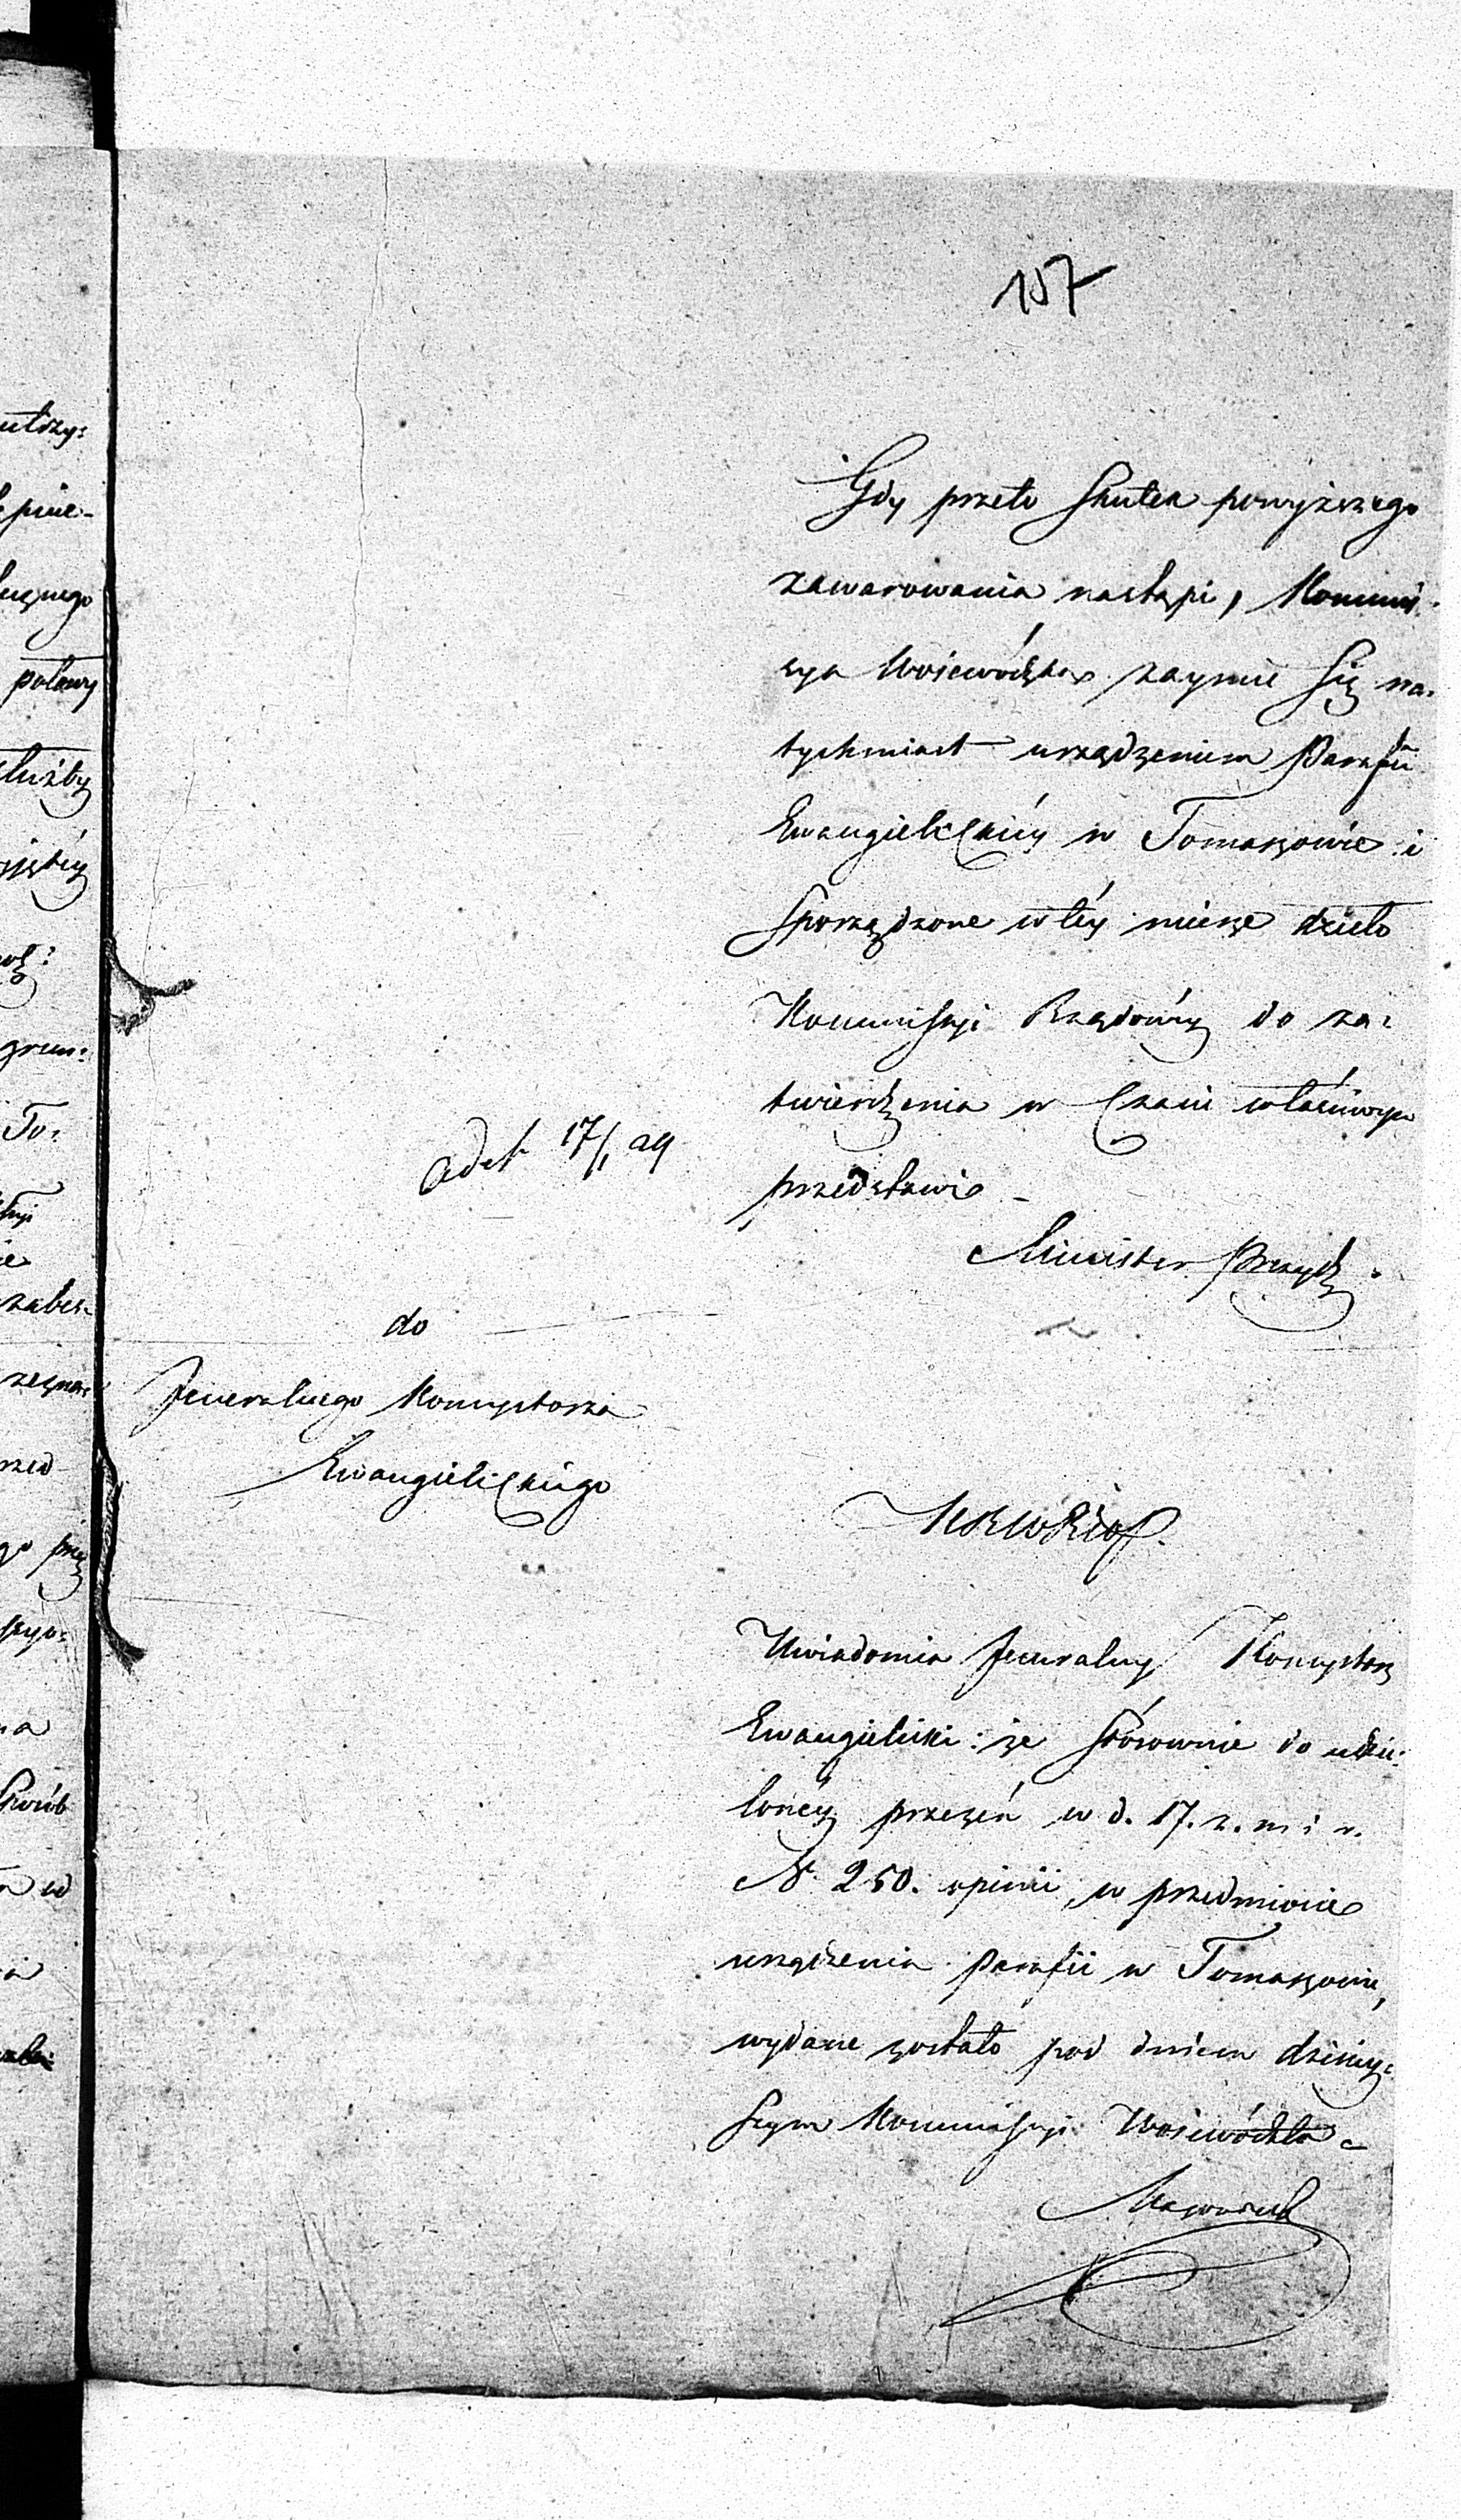 157
Gdy przeto Skutek powyższego
zawarowania nastąpi, Kommis-
sya Woiewódzka zaymie Się na-
tychmiast urządzeniem Parafii
Ewangielickiéy w Tomaszowie i
Sporządzone w téy mierze dzieło
Kommissyi Rządowéy do za-
twierdzenia w Czasie właściwym
przedstawi
Minister Prezyd:
do
Jeneralnego Konsystorza
Ewangielickiego
Uwiadomia Jeneralny Konsystorz
Ewangielicki: że Stósownie do udzie-
lonéy przezeń w d. 17. z. m i r.
N. 250. opinii, w przedmiocie
urządzenia Parafii w Tomaszowie,
wydane zostało pod dniem dzisiey-
szym Kommissyi Woiewódzka